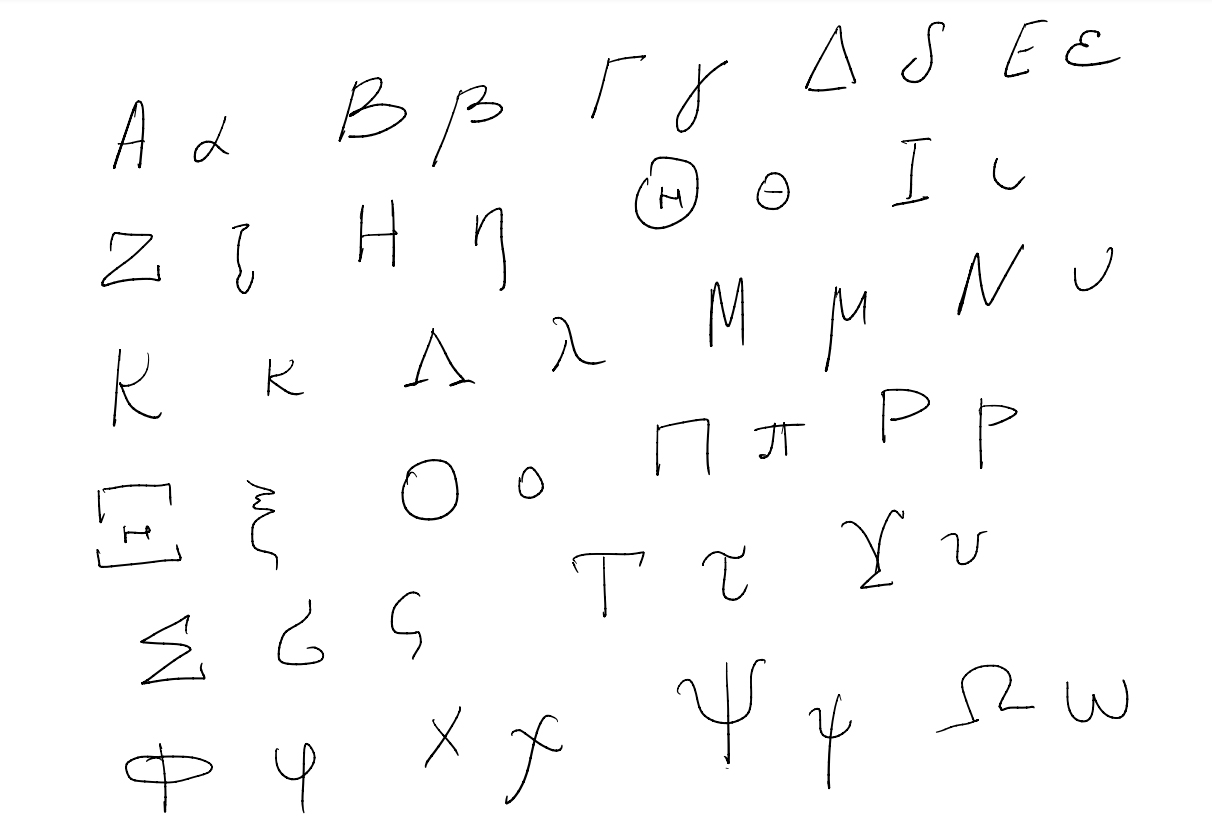 Α α Β β Γ γ Δ δ Ε ε
Ζ ζ Η η Θ θ Ι ι
Κ κ Λ λ Μ μ Ν ν
Ξ ξ Ο ο Π π Ρ ρ
Σ σ ς Τ τ Υ υ
Φ φ Χ χ Ψ ψ Ω ω